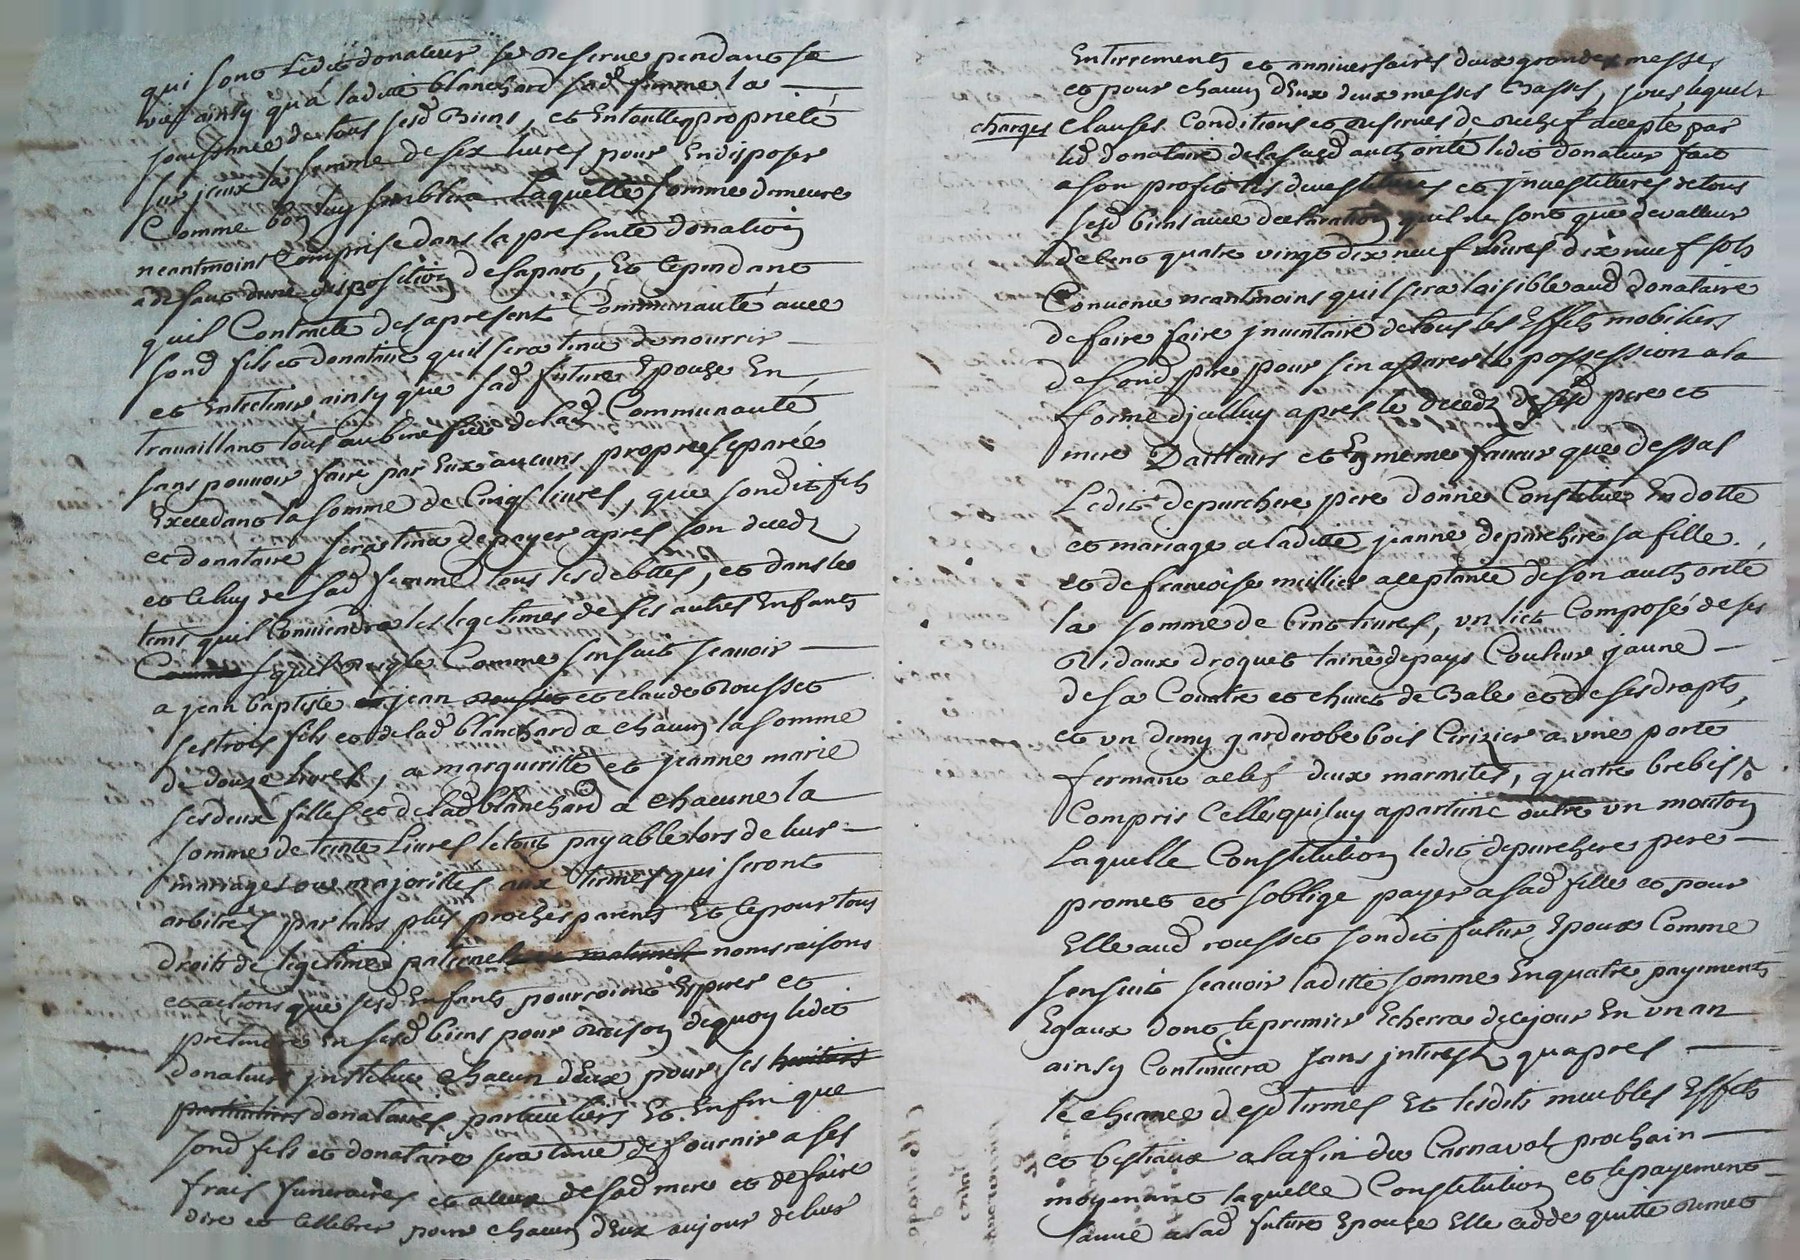 qui sont Ledit donateur se Reserve pendant sa
vie ainsy qu'a laditte blanchard sad femme la
jouissance de tous sesd Biens, et Entoutte propriété
sur iceux la somme de six livres pour En disposer
Comme bon luy semblera Laquelle somme demeure
neantmoins Comprise dans la presente donation
a deffaut dune disposition de sa part, Et Cependant
quil Contracte des apresent Communauté avec
sond fils et donataire quil sera tenu de nourrir
et Entretenir ainsy que sad future Epouse En
travaillant tous au benefice de lad Communauté
sans pouvoir faire par Eux aucuns propres separée
Excedant la somme de Cinq livres, que sondit fils
et donataire sera tenu de payer apres son decedz
et Celuy de sad femme tous les debttes, et dans les
tems quil Conviendra les legitimes de ses autres Enfants
Comme squels regle Comme sensuit scavoir
a jean baptiste et jean rousset et claude Rousset
ses trois fils et de lad blanchard a chacun la somme
de douze livres, a margueritte et jeanne marie
ses deux filles et de lad blanchard a chacune la
somme de trente Livres le tout payable lors de leur
mariages ou majorittes aux termes qui seront
arbitrés par leurs plus proches parents Et Ce pour tous
droits de legitimes paternels et maternels noms raisons
et actions que sesd Enfants pourroient Esperer et
pretendre En sesd biens pour Raison dequoy ledit
donateur institue chacun dEux pour ses heritiers
particuliers donataires particuliers Et Enfin que
sond fils et donataire sera tenu de fournir a ses
frais funeraires et a ceux de sad mere et de faire
dire et Cellebrer pour chacun dEux aujour de leurs
Enterrements et anniversaires deux grandes messes
et pour chacun dEux deux messes Basses, sous lesquels
charges Clauses Conditions et Reserves de Rechef accepté par
led donataire de la susd authorité ledit donateur fait
a son profit les devestitures et jnvestitures de tous
sesd biens avec declaration quil ne sont que de valleur
de Cent quatre vingt dix neuf livres dix neuf sols
Convenu neantmoins quil sera loisible aud donataire
de faire faire jnventaire de tous les Effets mobiliers
de sond pere pour sen assurer la possession a la
forme djcelluy apres le decedz de sesd pere et
mere Dailleurs et En meme faveur que dessus
Ledit depurchere pere donne Constitue En dotte
et mariage a laditte jeanne depurchere sa fille
et de francoise millier aceptante de son authorité
la somme de Cent livres, un lict Composé de ses
Rideaux droguet laine de pays Couleur jaune
de sa Couttre et chuet de Bale et de ses drapts,
et un demy garderobe bois Cerizier a une porte
fermant a clef deux marmites, quatre brebis
Compris Celle qui luy apartient outre un mouton
Laquelle Constitution ledit depurchere pere
promet et soblige payer a sad fille et pour
Elle aud rousset sondit futur Epoux Comme
sensuit scavoir laditte somme En quatre payements
Egaux dont le premier Echerra de ce jour En un an
ainsy Continuera sans jnterest qu apres
le chimée desd termes Et lesdits meubles Effets
et bestiaux a la fin du Carnaval prochain
moyenant laquelle Constitution et le payement
dicelle a lad future Epouse Elle cedde quitte Remet